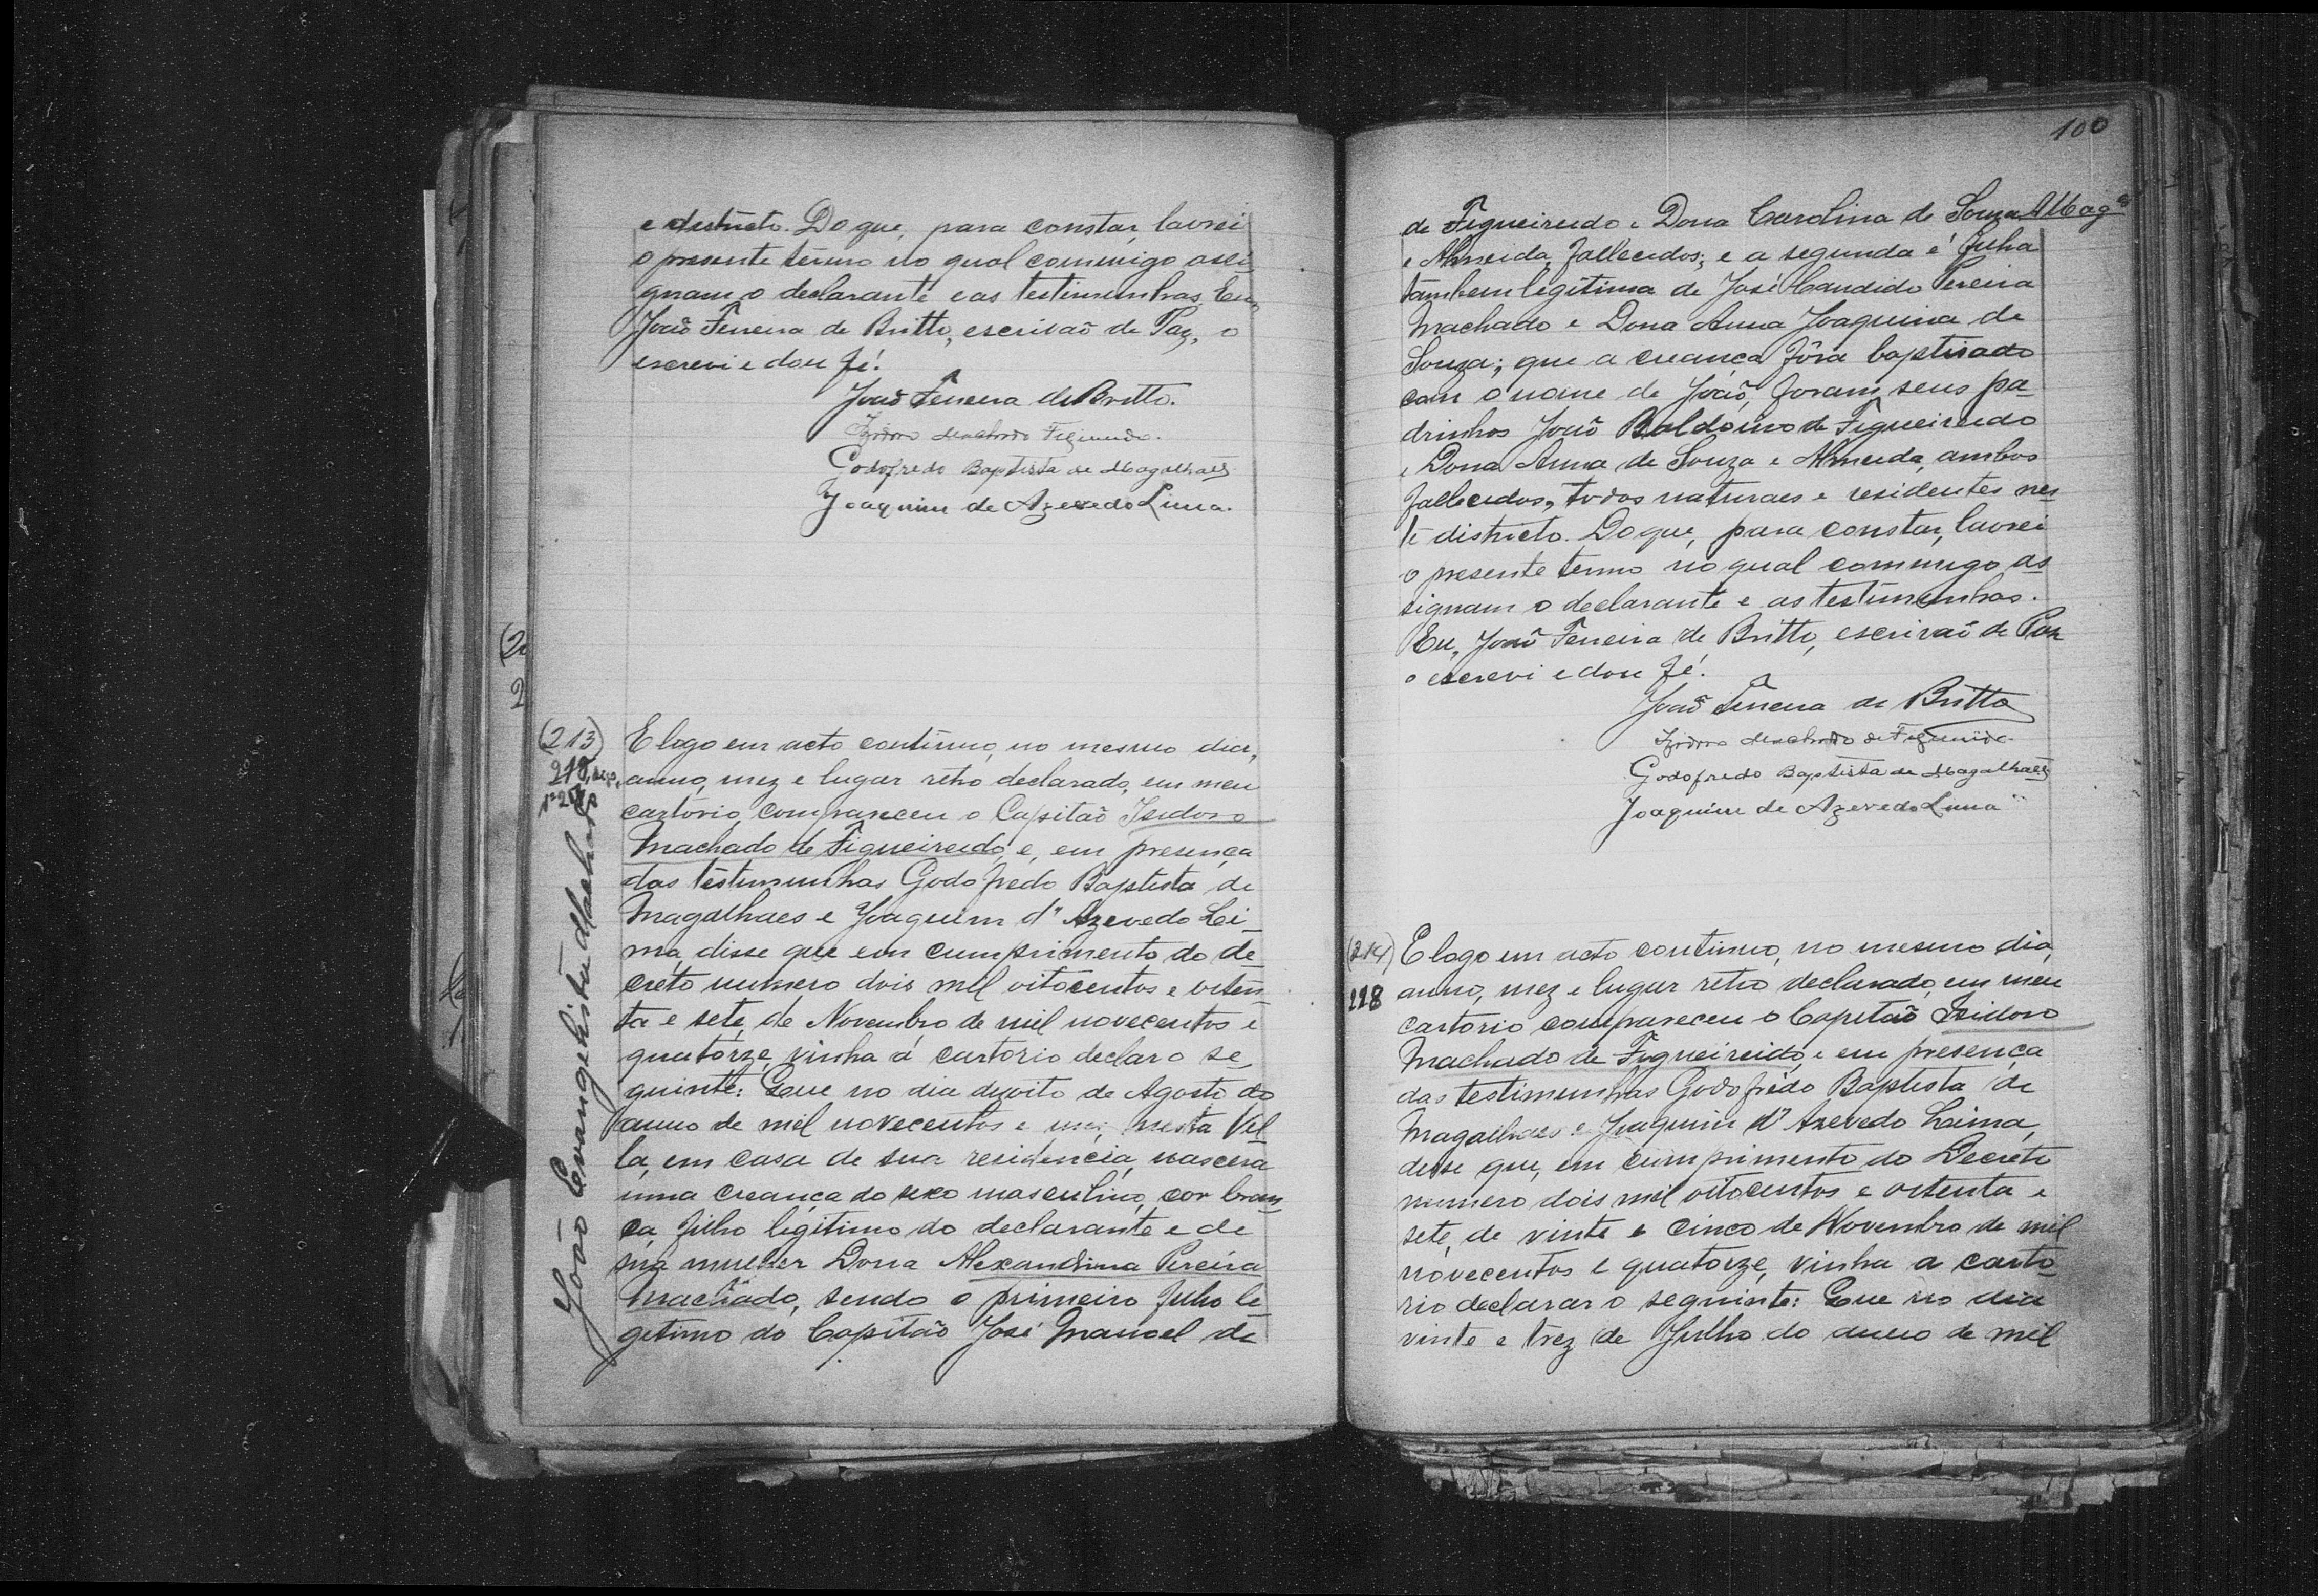 e districto. Do que, para constar, lavrei
o presente termo no qual commigo assi-
gnam o declarante e as testimunhas. Eu,
João Ferreira de Britto, escrivaõ de Paz, o
escrevi e dou fé.
João Ferreira de Britto.
Izidoro Machado Figueiredo.
Godofredo Baptista de Magalhaes
Joaquim de Azevedo Lima.
(213)
218
João Evangelista Machado
E logo em acto continuo, no mesmo dia,
anno, mez e lugar retro declarado, em meu
cartorio, compareceu o Capitaõ Isidoro
Machado de Figueireido, e, em presença
das testimunhas Godofredo Baptista de
Magalhaes e Joaquim d' Azevedo Lei-
ma, disse que em cumprimento do de-
creto numero dois mil oitocentos e oiten-
ta e sete, de Novembro de mil novecentos e
quatorze, vinha á cartorio declar o se-
guinte: Que no dia dezoito de Agosto do
anno de mil novecentos e um, nesta Vil-
la, em casa de sua residencia, nascera
uma creança do sexo masculino, cor bran-
ca, filho legitimo do declarante e de
sua mulher Dona Alexandrina Pereira
Machado, sendo o primeiro filho le-
getimo do Capitão José Manoel de
100
de Figueireido e Dona Carolina de Souza Mag.es
e Almeida, fallecidos; e a segunda é filha
tambem legitima de José Candido Pereira
Machado e Dona Anna Joaquina de
Souza; que a creança fôra baptisado
com o nome de João, foram seus pa-
drinhos João Baldoino de Figueireido
e Dona Anna de Souza e Almeida, ambos
fallecidos, todos naturaes e residentes nes-
te districto. Do que, para constar, lavrei
o presente termo no qual commigo as-
signam o declarante e as testimunhas.
Eu, João Ferreira de Britto, escrivaõ de Paz
o escrevi e dou fé.
João Ferreira de Britto
Izidoro Machado de Figueiredo.
Godofredo Baptista de Magalhaes
Joaquim de Azevedo Lima
(214)
228
E logo em acto continuo, no mesmo dia,
anno, mez e lugar retro declarado, em meu
cartorio compareceu o Capitão Isidoro
Machado de Figueireido, e em presença
das testimunhas Godofrêdo Baptista de
Magalhaes e Joaquim d' Azevedo Leima,
disse que, em cumprimento do Decreto
numero dois mil oitocentos e oitenta e
sete, de vinte e cinco de Novembro de mil
novecentos e quatorze, vinha a carto-
rio declarar o seguinte: Que no dia
vinte e trez de Julho do anno de mil